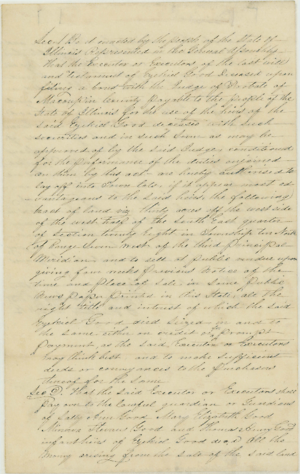 Sec 1 Be it enacted by the people of the State of
Illinois Represented in the General Assembly
that the Executor or Executors of the last will
and testament of Ezekiel Good Deceased upon
filing a bond with the Judge of Probate of
Macoupin County Payable to the people of the
State of Illinois for the use of the heirs of the
said Ezekiel Good deceased with such
securities and in such sum as may be
approved of by the said Judge conditioned
for the performance of the duties enjoined
on them by this act are hereby authorized to
lay off into Town lots, if it appear most ad
vantageous to the said heirs the following
tract of land viz thirty acres of the west side
of the west half of the South East quarter
of Section twenty Eight in Township ten North
of Range Seven West of the third principal
Meridian and to sell at public vendue upon
giving four weeks previous notice of the
time and place of sale in some Public
News Paper Printed in this State, all the
right title and interest of which the said
Ezekiel Good died seized in and to
the same either on credit or prompt
payment as the said Executor or Executors
may think best and to make sufficient
deeds or conveyances to the purchasers
thereof for the same
Sec 2 That the said Executor or Executors shall
pay over to the lawful guardian or Guardians
of Sally Ann Good Mary Elizabeth Good
Good and Thomas Good
infant heirs of Ezekiel Good decd all the
money arising from the sale of the said land